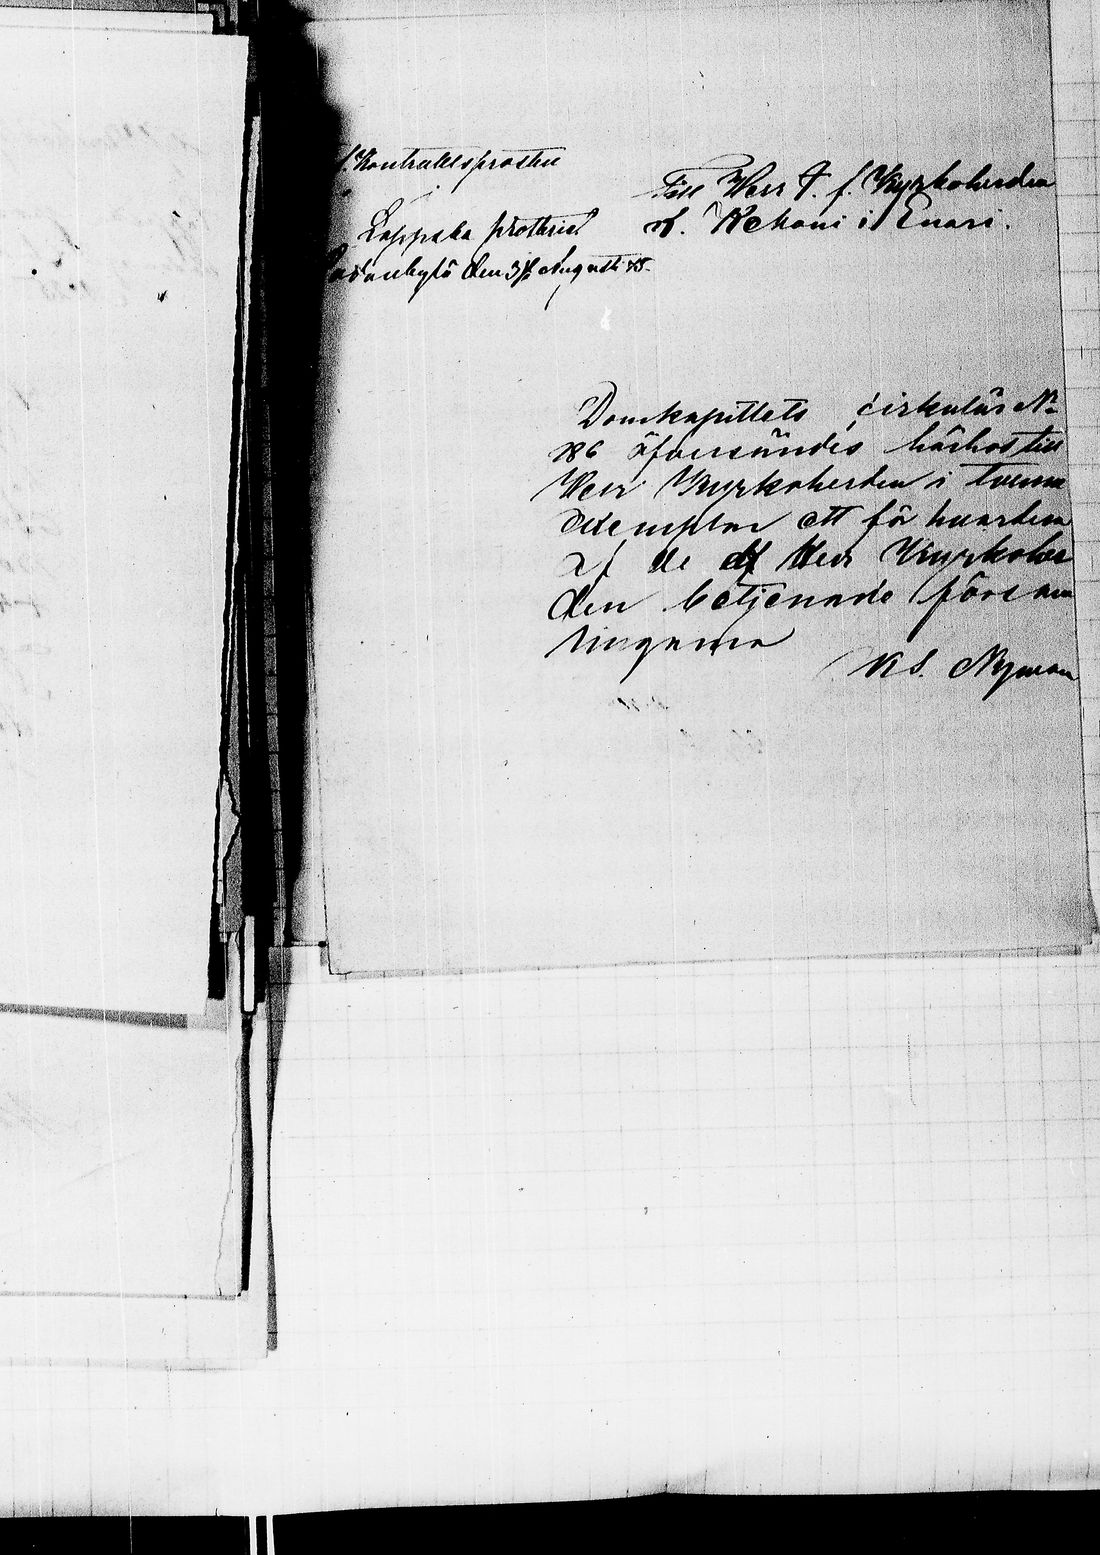 f. Kontraktsprosten
i
Lappska prosteriet
den 31 Augusti 78.
Till Herr T. f. Kyrkoherden
Kehani i Enari.
Domkapitlets cirkulär No
186 öfversändes härhos till
Herr Kyrkoherden i tvenne
exemplar ett för hvardera
af de af Herr Kyrkoher
den betjenade försam
lingarna
K S. Nyman